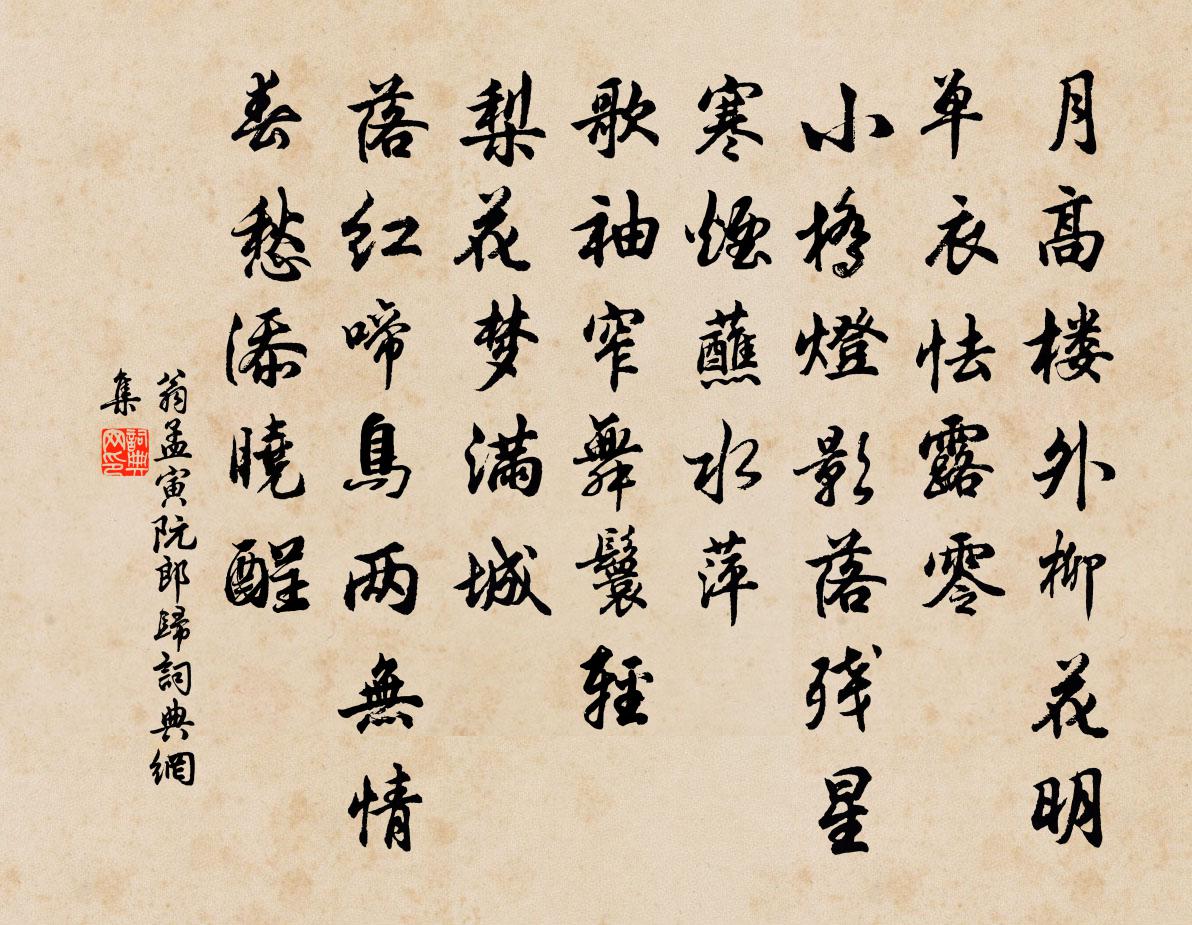 月高楼外柳花明
单衣怯露零
小橋燈影落残星
寒煙蘸水萍
歌袖窄舞鬟輕
梨花梦满城
落红啼鳥两無情
春愁添曉酲
翁孟寅阮郎歸詞典網
集
詞典网印